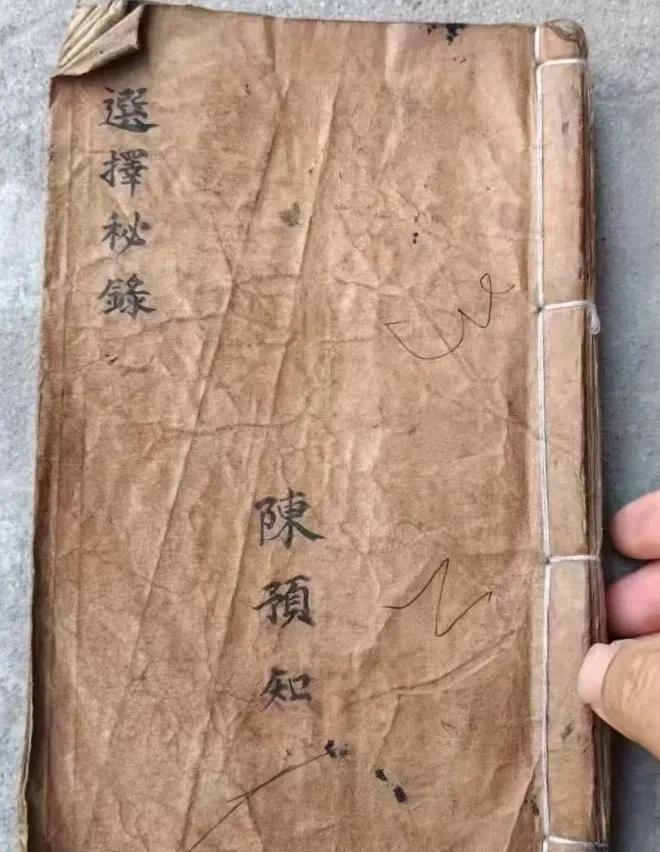 選擇秘錄
陳預知